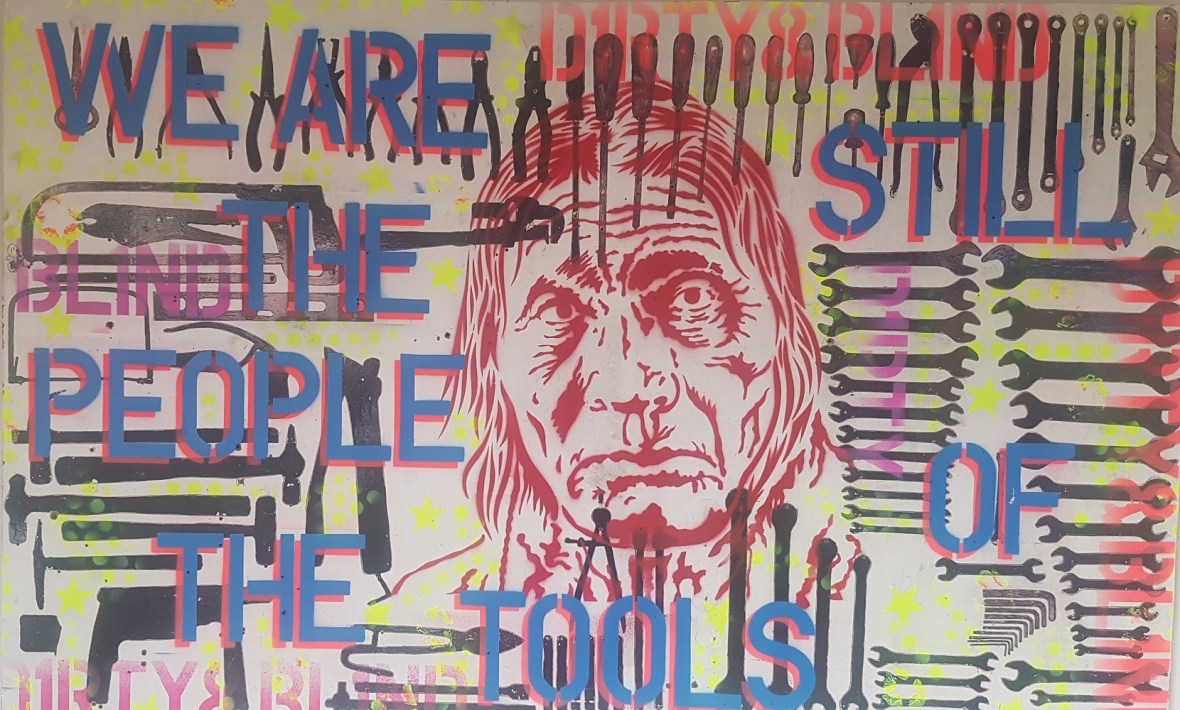 D1RTY& BL1ND
WE ARE
STILL
THE
BL1ND
PEOPLE
OF
THE
TOOLS
D1RTY
D1RTY& BL1ND
D1RTY& BL1ND